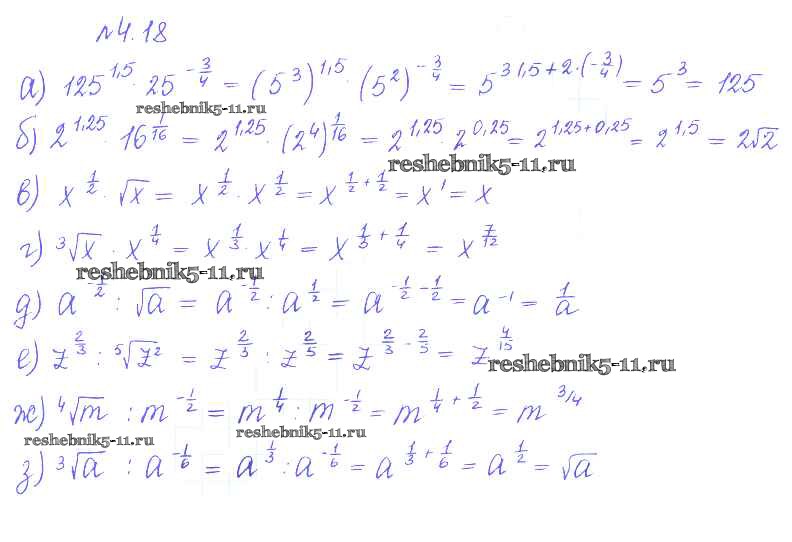 №4.18
а) 125^{1,5} · 25^{-3/4} = (5^3)^{1,5} · (5^2)^{-3/4} = 5^{3·1,5+2·(-3/4)} = 5^3 = 125
reshebnik5-11.ru
б) 2^{1,25} · 16^{1/16} = 2^{1,25} · (2^4)^{1/16} = 2^{1,25} · 2^{0,25} = 2^{1,25+0,25} = 2^{1,5} = 2√2
reshebnik5-11.ru
в) x^{1/2} · √x = x^{1/2} · x^{1/2} = x^{1/2+1/2} = x^1 = x
г) ³√x · x^{1/4} = x^{1/3} · x^{1/4} = x^{1/3+1/4} = x^{7/12}
reshebnik5-11.ru
д) a^{-1/2} : √a = a^{-1/2} : a^{1/2} = a^{-1/2-1/2} = a^{-1} = 1/a
е) z^{2/3} : ⁵√z² = z^{2/3} : z^{2/5} = z^{2/3-2/5} = z^{4/15}
reshebnik5-11.ru
ж) ⁴√m : m^{-1/2} = m^{1/4} : m^{-1/2} = m^{1/4+1/2} = m^{3/4}
reshebnik5-11.ru reshebnik5-11.ru
з) ³√a : a^{-1/6} = a^{1/3} : a^{-1/6} = a^{1/3+1/6} = a^{1/2} = √a